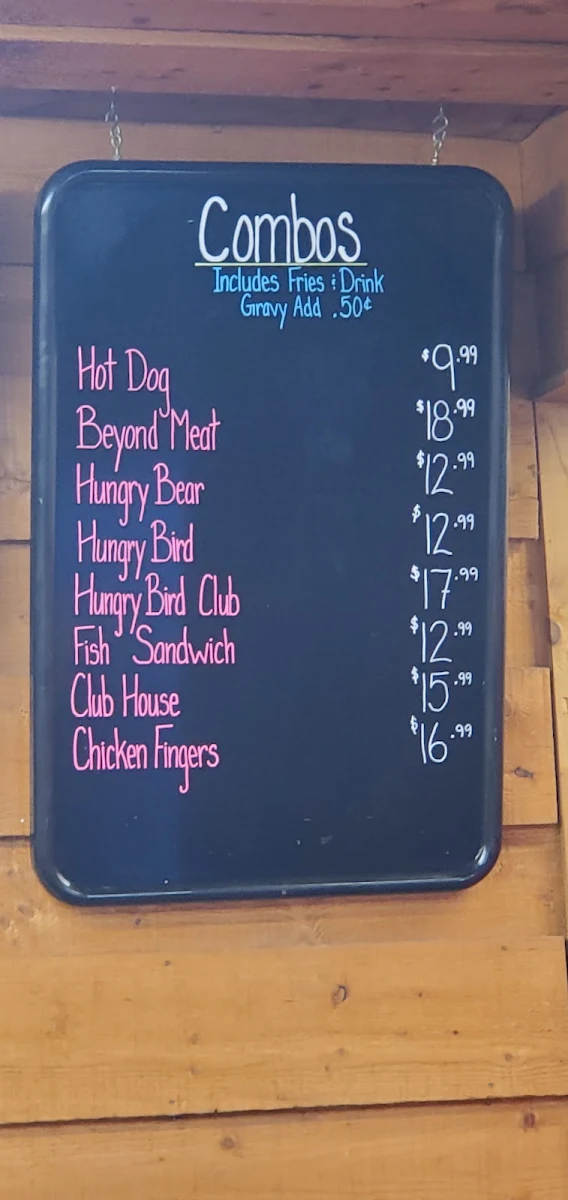 Combos
Includes Fries & Drink
Gravy Add .50¢
Hot Dog $9.99
Beyond Meat $18.99
Hungry Bear $12.99
Hungry Bird $12.99
Hungry Bird Club $17.99
Fish Sandwich $12.99
Club House $15.99
Chicken Fingers $16.99